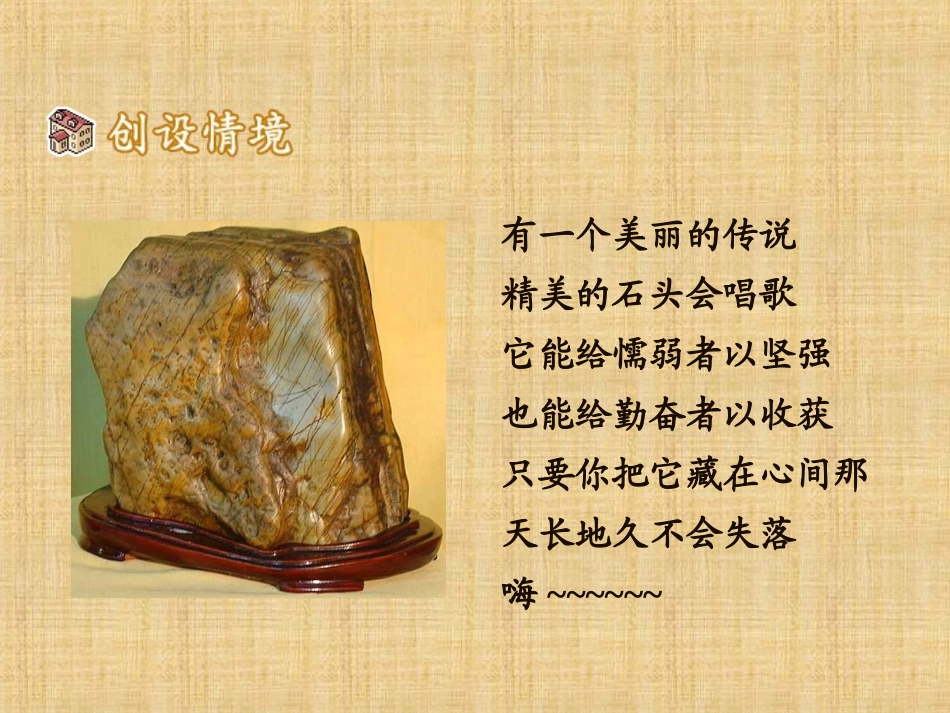 创设情境
有一个美丽的传说
精美的石头会唱歌
它能给懦弱者以坚强
也能给勤奋者以收获
只要你把它藏在心间那
天长地久不会失落
嗨 ~~~~~~